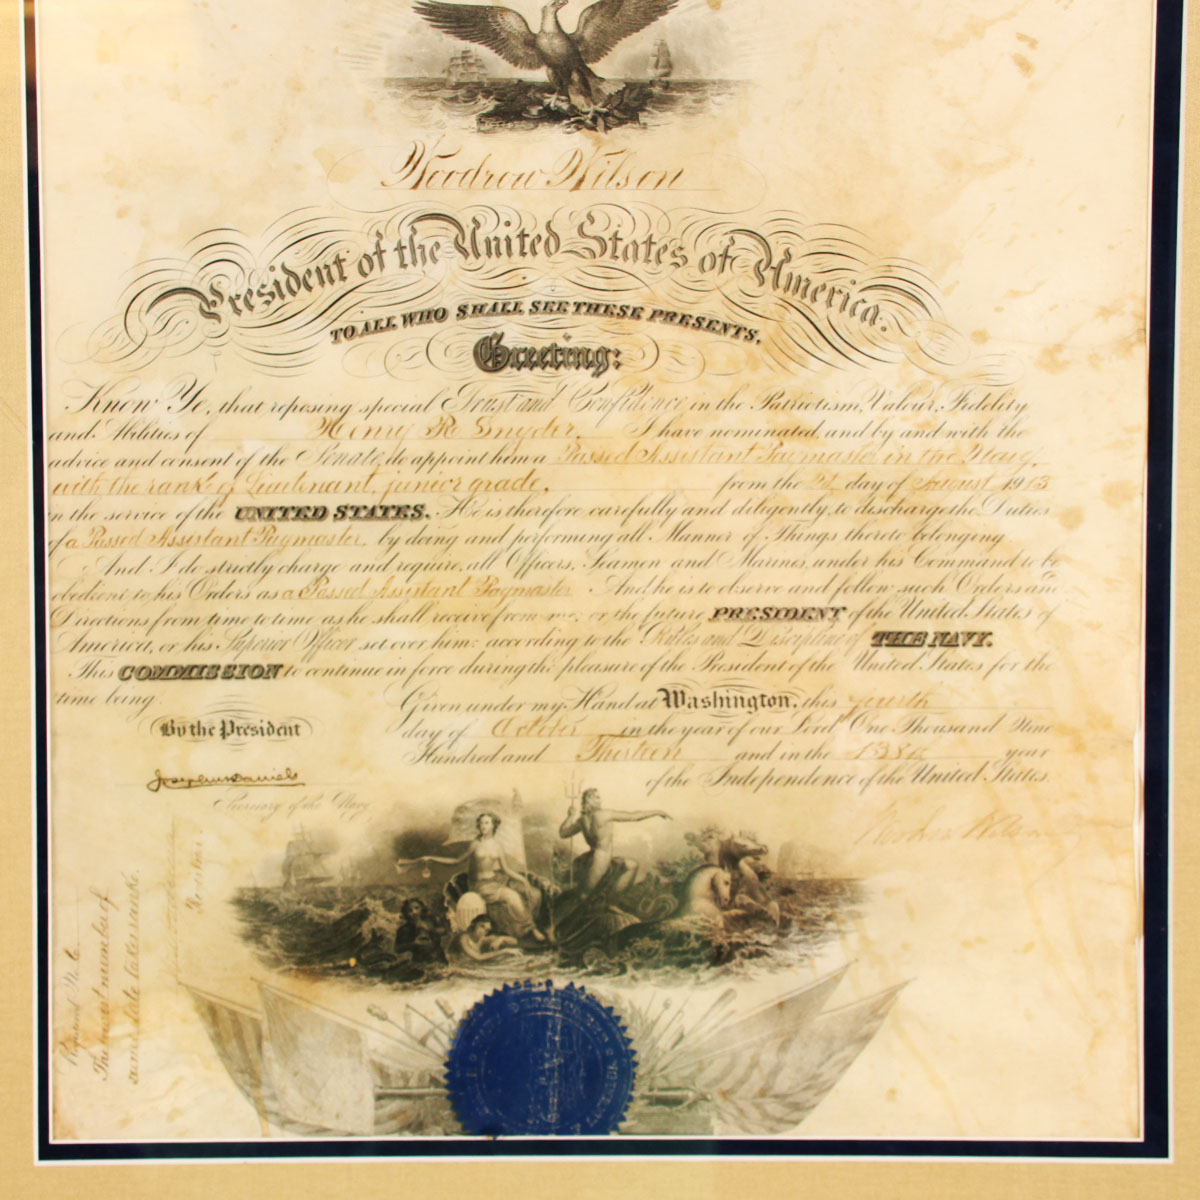 Woodrow Wilson
President of the United States of America.
TO ALL WHO SHALL SEE THESE PRESENTS,
Greeting:
Know Ye, that reposing special Trust and Confidence in the Patriotism, Valour, Fidelity
and Abilities of Henry R. Snyder, I have nominated, and by and with the
advice and consent of the Senate, do appoint him a Passed Assistant Paymaster in the Navy,
with the rank of Lieutenant, junior grade, from the day of August 1913
in the service of the UNITED STATES. He is therefore carefully and diligently, to discharge the Duties
of a Passed Assistant Paymaster, by doing and performing all Manner of Things thereto belonging.
And I do strictly charge and require, all Officers, Seamen and Marines, under his Command to be
obedient to his Orders as a Passed Assistant Paymaster. And he is to observe and follow such Orders and
Directions from time to time as he shall receive from me, or the future PRESIDENT of the United States of
America, or his Superior Officer set over him, according to the Rules and Discipline of THE NAVY.
This COMMISSION to continue in force during the pleasure of the President of the United States for the
time being.
Given under my Hand at Washington, this fourth
By the President
day of October in the year of our Lord One Thousand Nine
Hundred and Thirteen and in the 138th year
Josephus Daniels
of the Independence of the United States.
Secretary of the Navy
Woodrow Wilson
Register.
The next number of
same date takes rank.